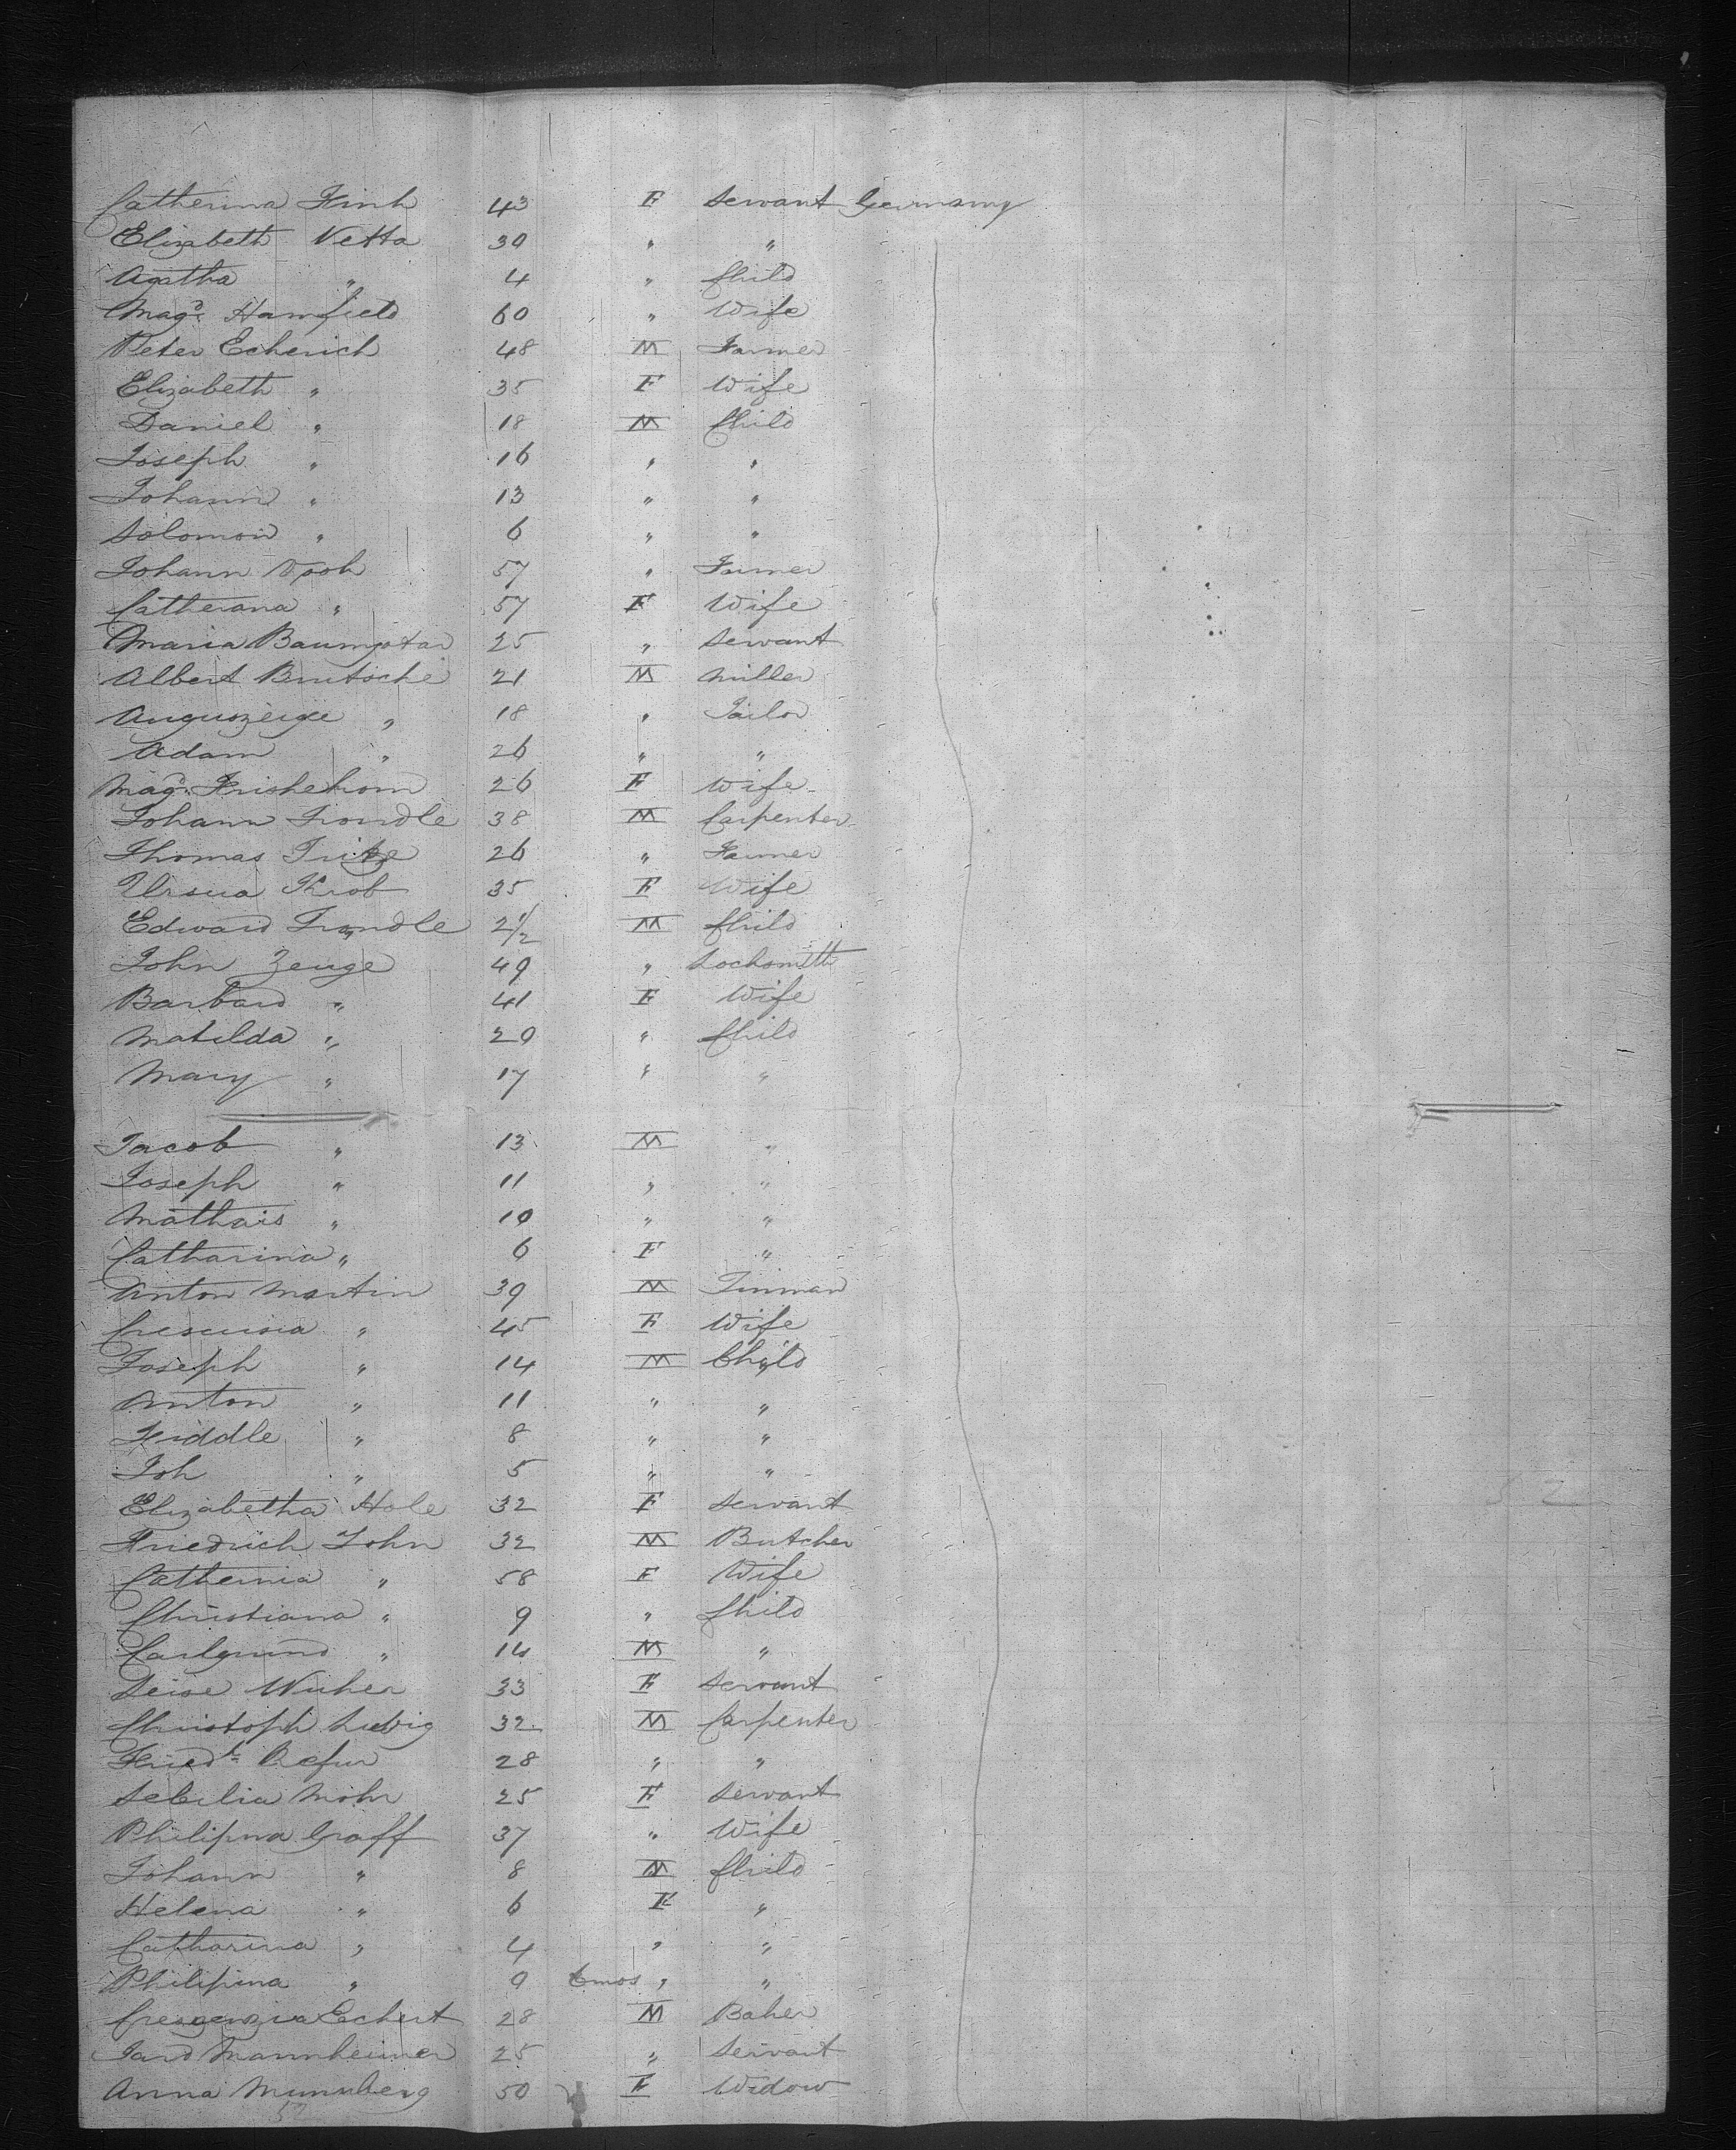 Catherina Finh 43 F Servant Germany
Elizabeth Netta 30 " "
Agatha " 4 " Child
Magd. Hamfield 60 " Wife
Peter Echerich 48 M Farmer
Elizabeth " 35 F Wife
Daniel " 18 M Child
Joseph " 16 " "
Johann " 13 " "
Solomon " 6 " "
Johann Vooh 57 " Farmer
Catherana " 57 F Wife
Maria Baumgotar 25 " Servant
Albert Brutsche 21 M Miller
" 18 " Tailor
Adam " 26 " "
Magd. Frishehorn 26 F Wife
Johann Trondle 38 M Carpenter
Thomas Tritze 26 " Farmer
Ursua Krob 35 F Wife
Edward Trondle 2 1/2 M Child
John Zeuge 49 " Locksmith
Barbara " 41 F Wife
Matilda " 20 " Child
Mary " 17 " "
Jacob " 13 M "
Joseph " 11 " "
Mathais " 10 " "
Catharina " 6 F "
Anton Martin 39 M Tinman
Crescusia " 45 F Wife
Joseph " 14 M Child
Anton " 11 " "
Fiddle " 8 " "
Joh " 5 " "
Elizabetha Hole 32 F Servant
Friedrich John 32 M Butcher
Cathernia " 58 F Wife
Christiana " 9 " Child
Carlgrund " 14 M "
Seise Wuher 33 F Servant
Christoph Ludvig 32 M Carpenter
Friedk Refur 28 " "
Sebilia Mohr 25 F Servant
Philipina Graff 37 " Wife
Johann " 8 M Child
Helena " 6 F "
Catharina " 4 " "
Philipina " 9 mos " "
Crezenzia Echert 28 M Baker
Mannheimer 25 " Servant
Anna Munnberg 50 F Widow
52